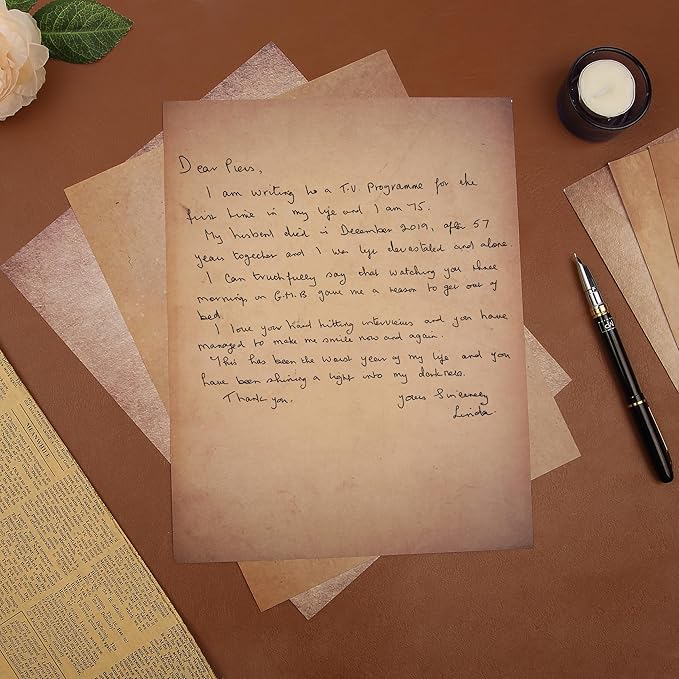 Dear Piers,
I am writing to a T.V. Programme for the
first time in my life and I am 75.
My husband died in December 2019, after 57
years together and I was left devastated and alone.
I can truthfully say that watching you three
mornings on G.M.B gave me a reason to get out of
bed.
I love your hard hitting interviews and you have
managed to make me smile now and again.
This has been the worst year of my life and you
have been shining a light into my darkness.
Thank you.
Yours Sincerely
Linda.